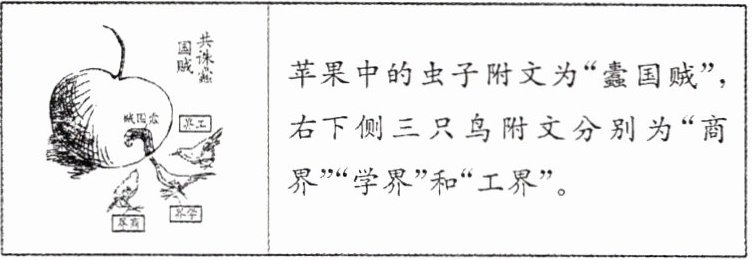 共诛蠹
国贼
贼国蠹
界工
界学
界商
苹果中的虫子附文为“蠹国贼”，
右下侧三只鸟附文分别为“商
界”“学界”和“工界”。